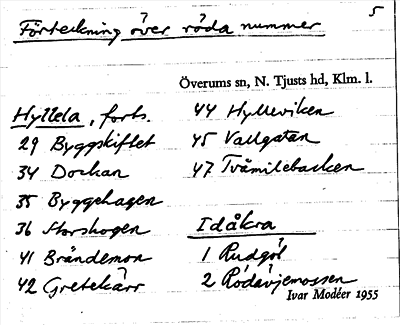 5
Förteckning över röda nummer
Överums sn, N. Tjusts hd, Klm. l.
Hyllela, forts.
29 Byggskiftet
34 Dockan
35 Byggehagen
36 Storskogen
41 Brändemon
42 Gretekärr
44 Hylleviken
45 Vallgatan
47 Tvämilebacken
Idåkra
1 Rudgöl
2 Rödåvjemossen
Ivar Modéer 1955